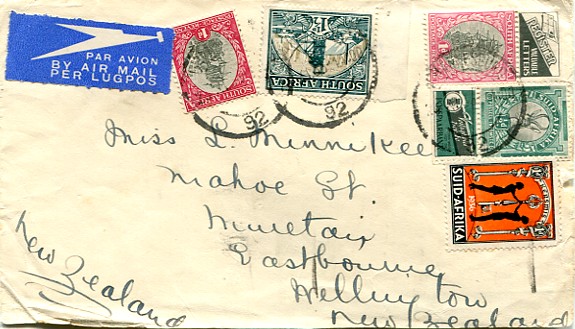 PAR AVION
BY AIR MAIL
PER LUGPOS
SOUTH AFRICA
SOUTH AFRICA
1d
92
92
SUID-AFRIKA
1936
Miss L. Minnikee
Mahoe St.
Eastbourne
Wellington
New Zealand
New Zealand